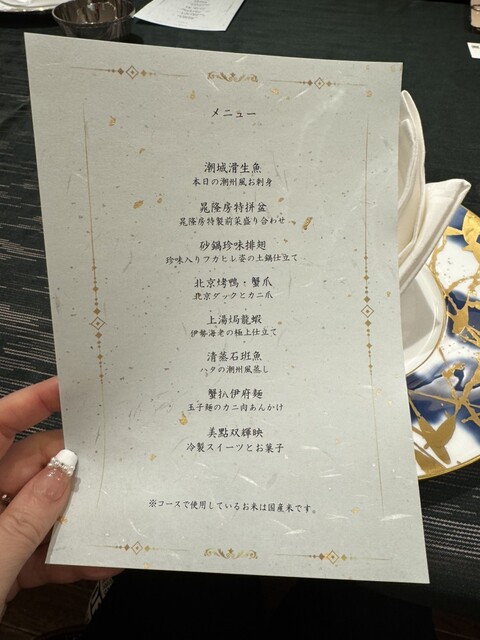 メニュー
潮城滑生魚
本日の潮州風お刺身
晁隆房特拼盆
晁隆房特製前菜盛り合わせ
砂鍋珍味排翅
珍味入りフカヒレ姿の土鍋仕立て
北京烤鴨・蟹爪
北京ダックとカニ爪
上湯焗龍蝦
伊勢海老の極上仕立て
清蒸石班魚
ハタの潮州風蒸し
蟹扒伊府麵
玉子麺のカニ肉あんかけ
美點双輝映
冷製スイーツとお菓子
※コースで使用しているお米は国産米です。